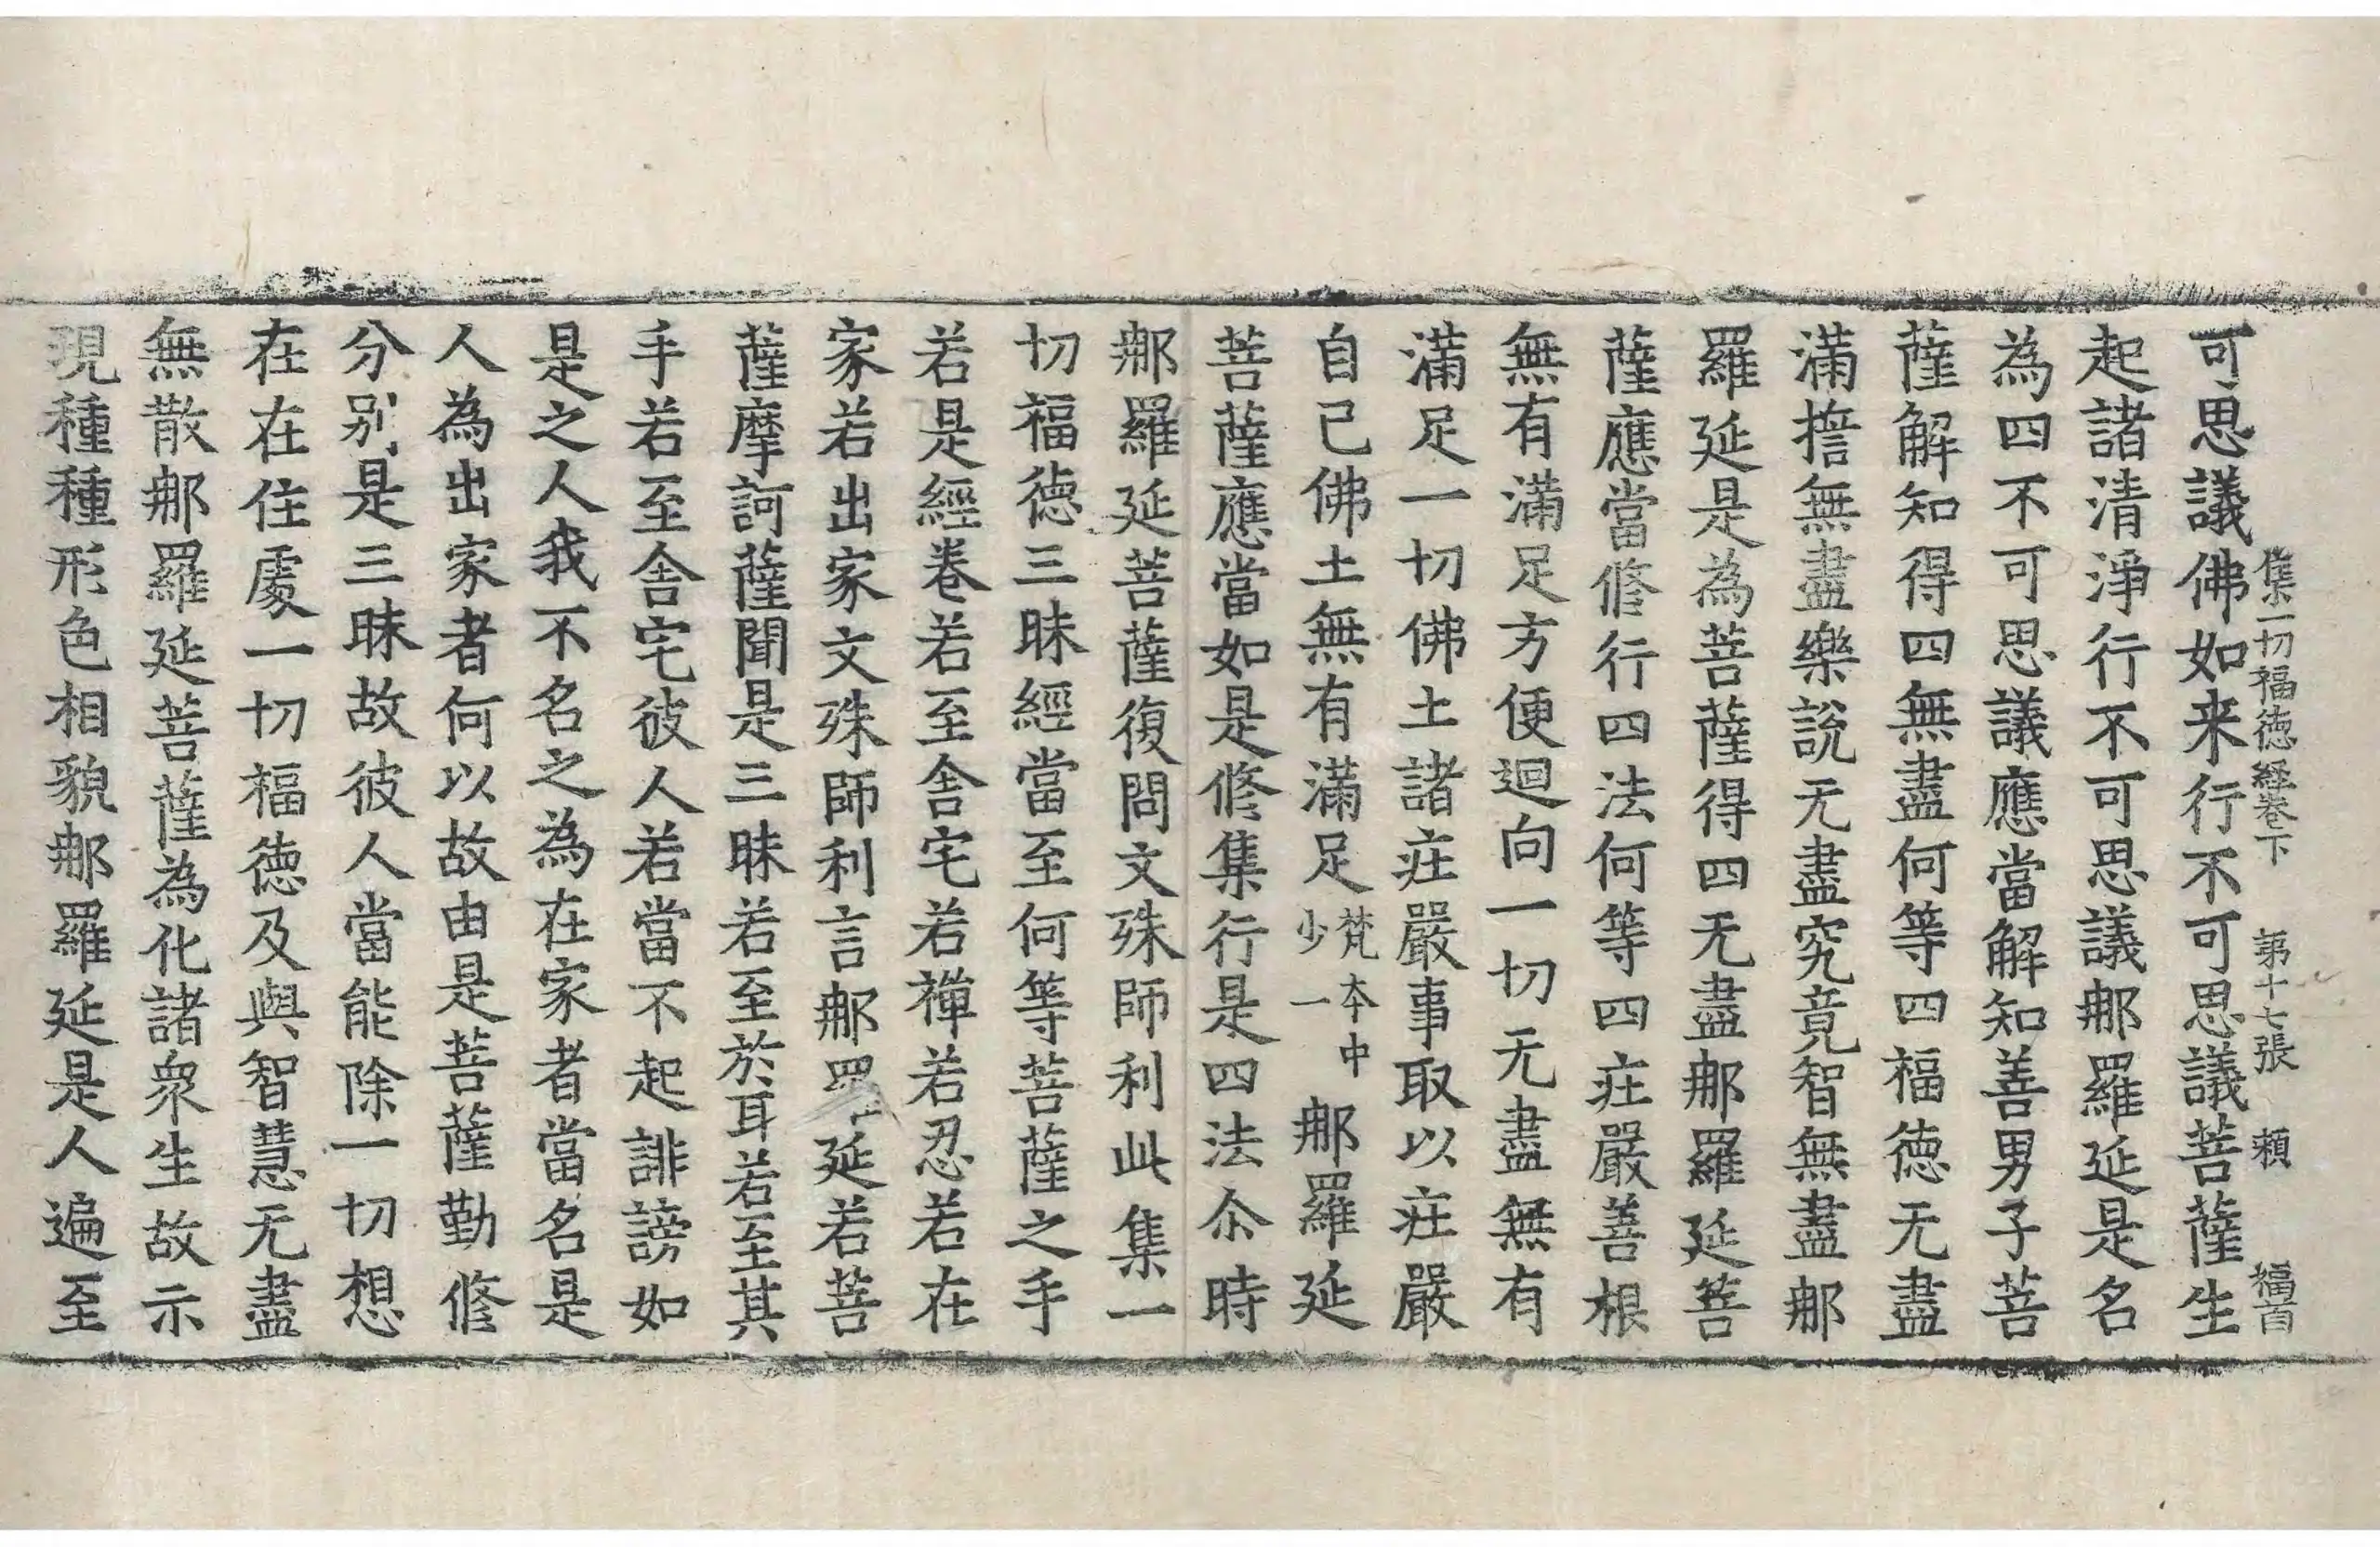 集一切福德經卷下 第十七張 頼 福首
可思議佛如来行不可思議菩薩生
起諸清淨行不可思議𨚗羅延是名
為四不可思議應當解知善男子菩
薩解知得四無盡何等四福德无盡
滿擔無盡樂說无盡究竟智無盡𨚗
羅延是為菩薩得四无盡𨚗羅延菩
薩應當修行四法何等四莊嚴善根
無有滿足方便迴向一切无盡無有
滿足一切佛土諸莊嚴事取以莊嚴
自己佛土無有滿足梵本中少一𨚗羅延
菩薩應當如是修集行是四法尒時
𨚗羅延菩薩復問文殊師利此集一
切福德三昧經當至何等菩薩之手
若是經卷若至舍宅若禪若忍若在
家若出家文殊師利言𨚗羅延若菩
薩摩訶薩聞是三昧若至於耳若至其
手若至舍宅彼人若當不起誹謗如
是之人我不名之為在家者當名是
人為出家者何以故由是菩薩勤修
分别是三昧故彼人當能除一切想
在在住處一切福德及與智慧无盡
無散𨚗羅延菩薩為化諸衆生故示
現種種形色相貌𨚗羅延是人遍至